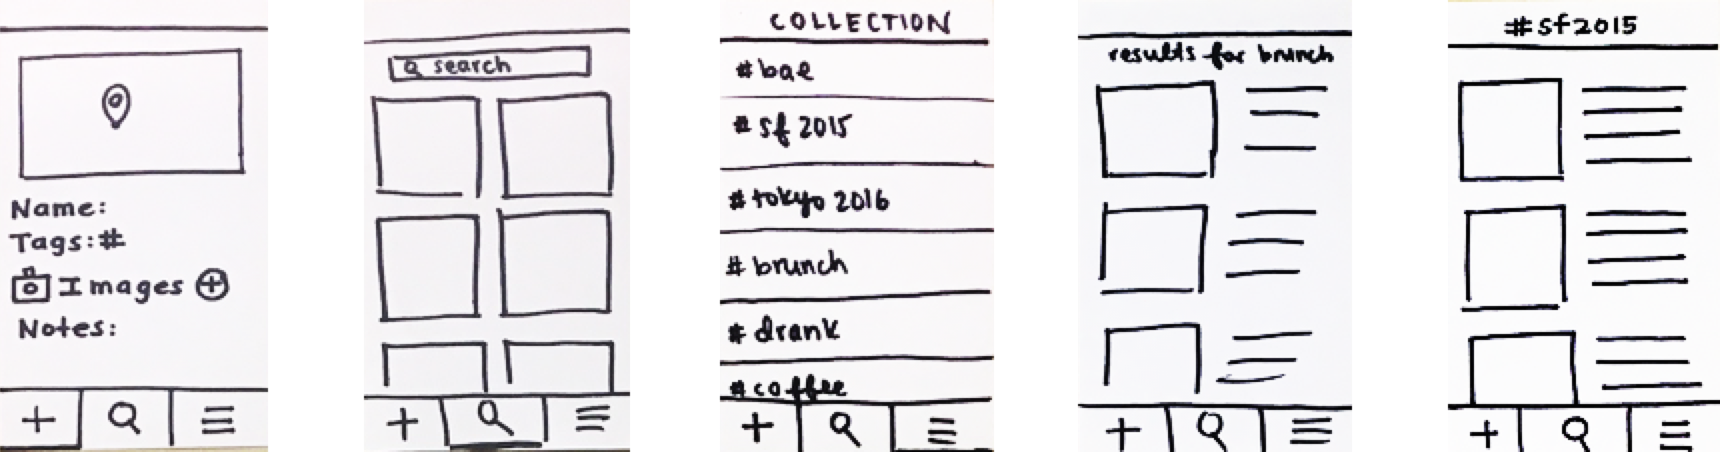 Name:
Tags:#
Images
Notes:
search
COLLECTION
#bae
#sf 2015
#tokyo 2016
#brunch
#drank
#coffee
results for brunch
#sf2015